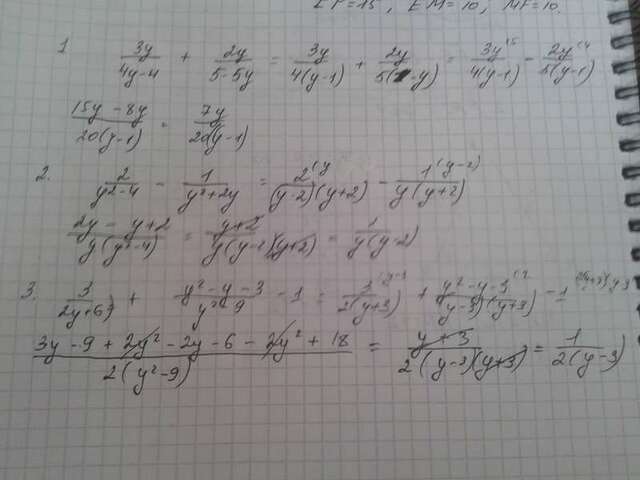 EF=15, EM=10, MF=10.
1 3y/(4y-4) + 2y/(5-5y) = 3y/4(y-1) + 2y/5(1-y) = 3y^(5/4(y-1) - 2y^(4/5(y-1)
(15y-8y)/20(y-1) = 7y/20(y-1)
2. 2/(y²-4) - 1/(y²+2y) = 2^(y/(y-2)(y+2) - 1^(y-2)/y(y+2)
(2y-y+2)/y(y²-4) = (y+2)/y(y-2)(y+2) = 1/y(y-2)
3. 3/(2y+6) + (y²-y-3)/(y²-9) - 1 = 3^(y-3/2(y+3) + (y²-y-3)^(2/(y-3)(y+3) - 1
(3y-9+2y²-2y-6-2y²+18)/2(y²-9) = (y+3)/2(y-3)(y+3) = 1/2(y-3)